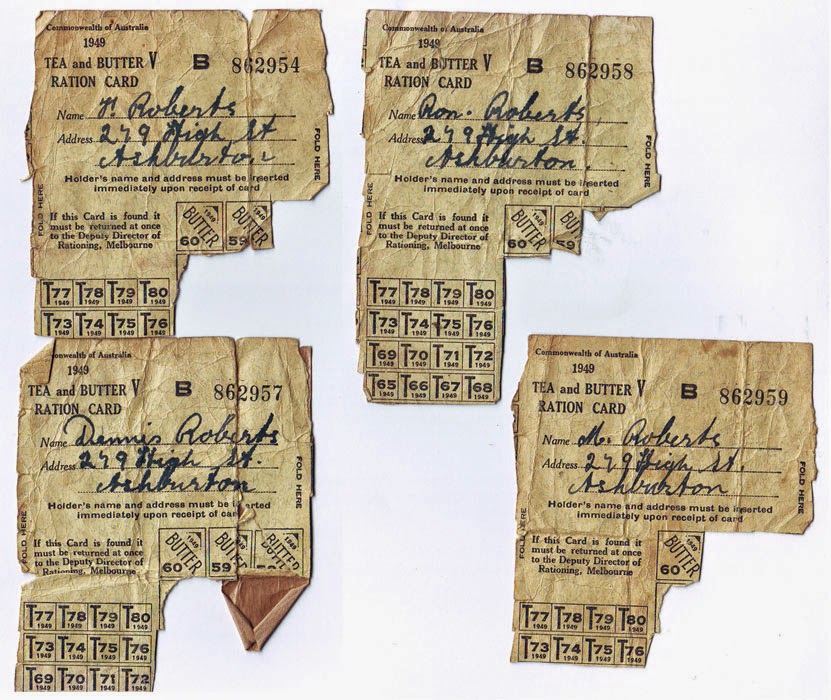 Commonwealth of Australia
1949
TEA and BUTTER V B 862954
RATION CARD
Name Roberts
Address 279 High St
Ashburton
Holder's name and address must be inserted
immediately upon receipt of card
FOLD HERE
FOLD HERE
If this Card is found it
must be returned at once
to the Deputy Director of
Rationing, Melbourne
1949 BUTTER 60
1949 BUTTER 59
T77 1949 T78 1949 T79 1949 T80 1949
T73 1949 T74 1949 T75 1949 T76 1949
Commonwealth of Australia
1949
TEA and BUTTER V B 862958
RATION CARD
Name Ron. Roberts
Address 279 High St.
Ashburton.
Holder's name and address must be inserted
immediately upon receipt of card
FOLD HERE
FOLD HERE
If this Card is found it
must be returned at once
to the Deputy Director of
Rationing, Melbourne
1949 BUTTER 60
59
T77 1949 T78 1949 T79 1949 T80 1949
T73 1949 T74 1949 T75 1949 T76 1949
T69 1949 T70 1949 T71 1949 T72 1949
T65 1949 T66 1949 T67 1949 T68 1949
monwealth of Australia
1949
TEA and BUTTER V B 862957
RATION CARD
Name Dennis Roberts
Address 279 High St.
Ashburton
Holder's name and address must be inserted
immediately upon receipt of card
FOLD HERE
FOLD HERE
If this Card is found it
must be returned at once
to the Deputy Director of
Rationing, Melbourne
1949 BUTTER 60
59
T77 1949 T78 1949 T79 1949 T80 1949
T73 1949 T74 1949 T75 1949 T76 1949
T69 1949 T70 1949 T71 1949 T72 1949
Commonwealth of Australia
1949
TEA and BUTTER V B 862959
RATION CARD
Name M. Roberts
Address 279 High St.
Ashburton
Holder's name and address must be inserted
immediately upon receipt of card
FOLD HERE
FOLD HERE
If this Card is found it
must be returned at once
to the Deputy Director of
Rationing, Melbourne
1949 BUTTER 60
T77 1949 T78 1949 T79 1949 T80 1949
T73 1949 T74 1949 T75 1949 T76 1949